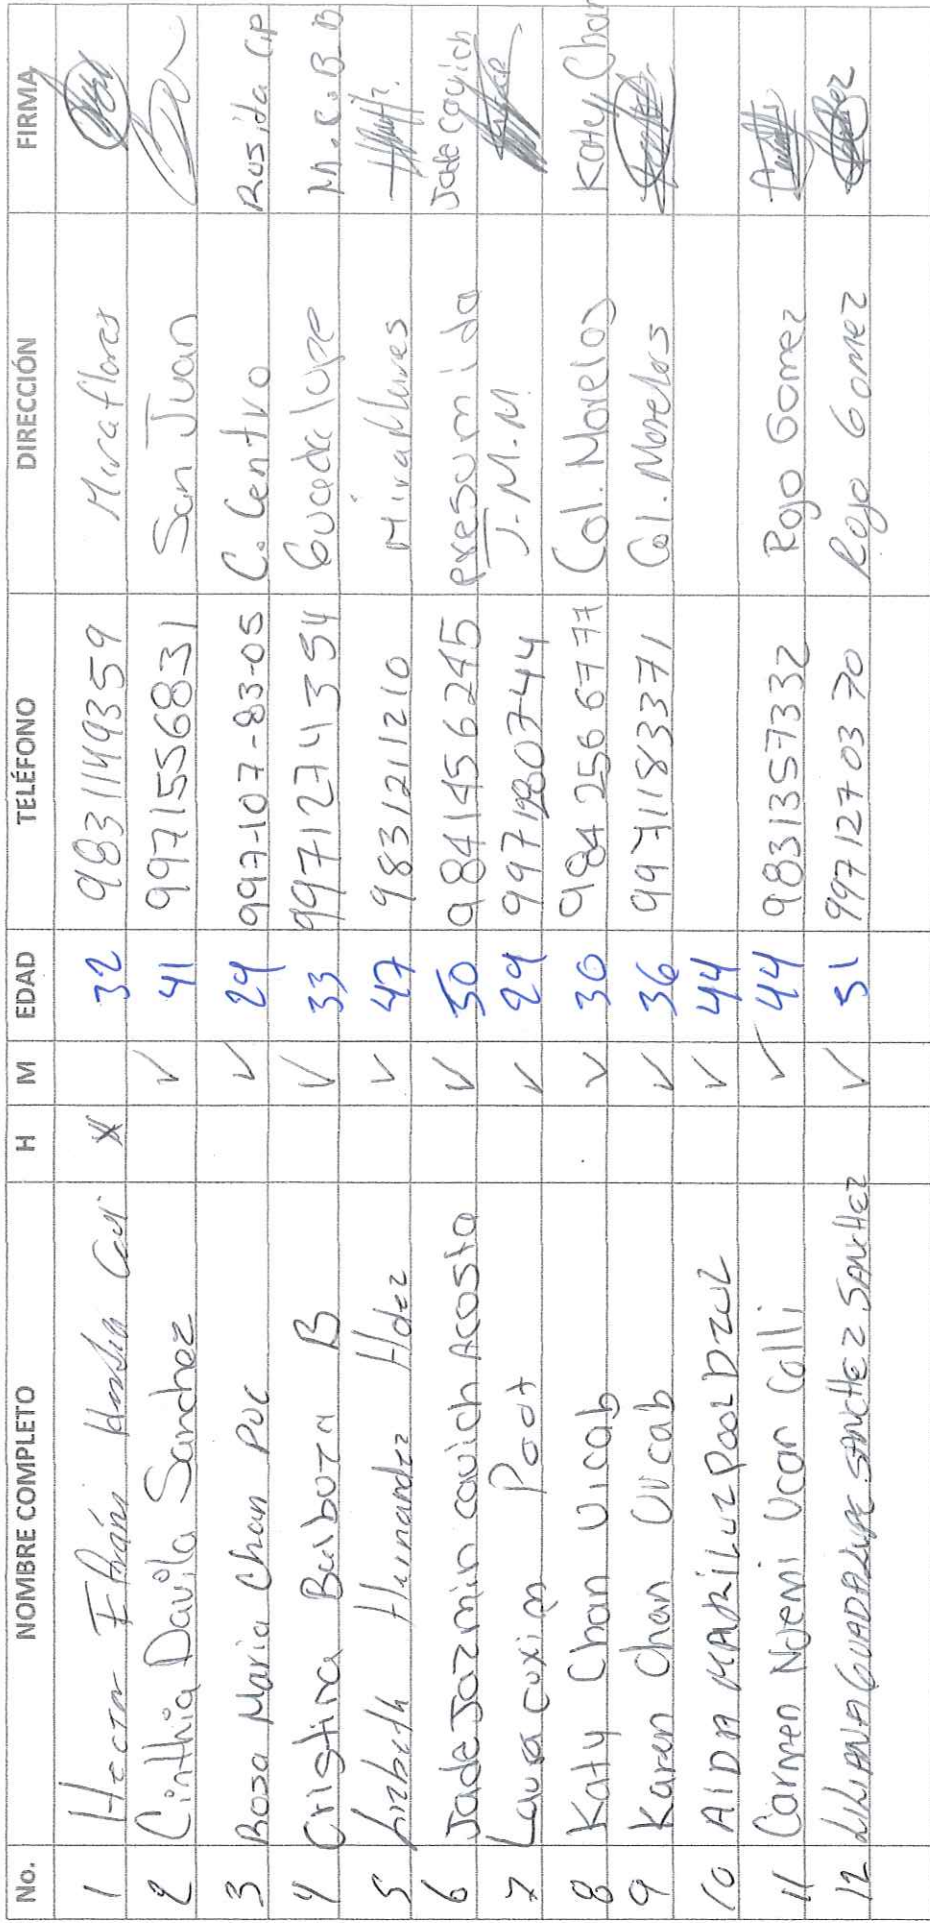 No. NOMBRE COMPLETO H M EDAD TELÉFONO DIRECCIÓN FIRMA
1 Hector Efraín X 32 9831149359 Miraflores
2 Cinthia Davila Sanchez ✓ 41 9971556831 San Juan
3 Rosa Maria Chan Puc ✓ 29 997-107-83-05 C. Centro Rosita CP
4 Cristina Balboza B ✓ 33 9971274354 Guadalupe M.C.B.B
5 Lizbeth Hernandez Hdez ✓ 47 9831211210 Miraflores
6 Jade Jazmin cauich Acosta ✓ 50 9841456245 presumida Jade Cauich
7 Laura cuxim Poot ✓ 29 J.M.M.
8 Katy Chan Uicab ✓ 30 9842566777 Col. Morelos Katy Chan
9 Karen Chan Uicab ✓ 36 9971183371 Col. Morelos
10 AIDA MARILUZ POOL DZUL ✓ 44
11 Carmen Noemi Ucan Calli ✓ 44 9831357332 Rojo Gomez
12 LILIANA GUADALUPE SANCHEZ SANCHEZ ✓ 51 9971270370 Rojo Gomez